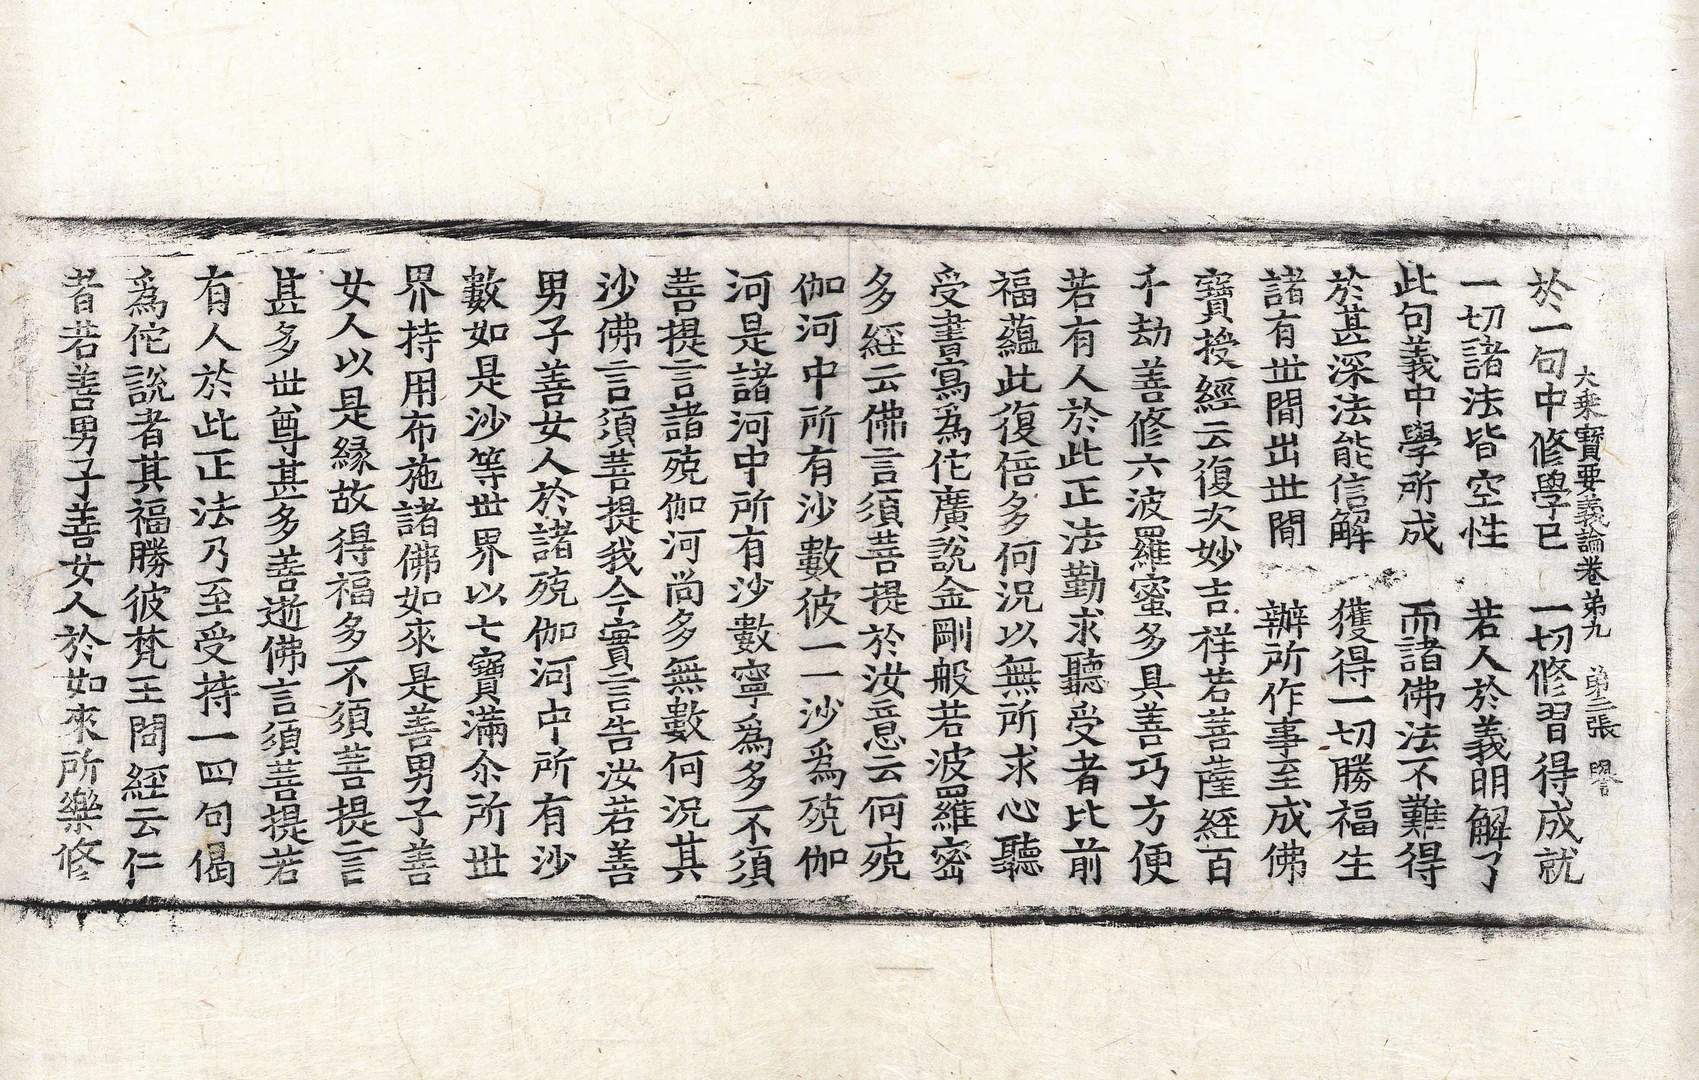 大乗寶要義論卷第九 第三張 譽
於一句中修學已 一切修習得成就
一切諸法皆空性 若人於義明解了
此句義中學所成 而諸佛法不難得
於甚深法能信解 獲得一切勝福生
諸有世間出世間 辦所作事至成佛
寶授經云復次妙吉祥若菩薩經百
千劫善修六波羅蜜多具善巧方便
若有人於此正法勤求聽受者比前
福蘊此復倍多何況以無所求心聽
受書寫爲佗廣說金剛般若波羅蜜
多經云佛言須菩提於汝意云何殑
伽河中所有沙數彼一一沙爲殑伽
河是諸河中所有沙數寧爲多不須
菩提言諸殑伽河尚多無數何況其
沙佛言須菩提我今實言告汝若善
男子善女人於諸殑伽河中所有沙
數如是沙等世界以七寶滿尒所世
界持用布施諸佛如來是善男子善
女人以是縁故得福多不須菩提言
甚多世尊甚多善逝佛言須菩提若
有人於此正法乃至受持一四句偈
爲佗說者其福勝彼梵王問經云仁
者若善男子善女人於如來所樂修